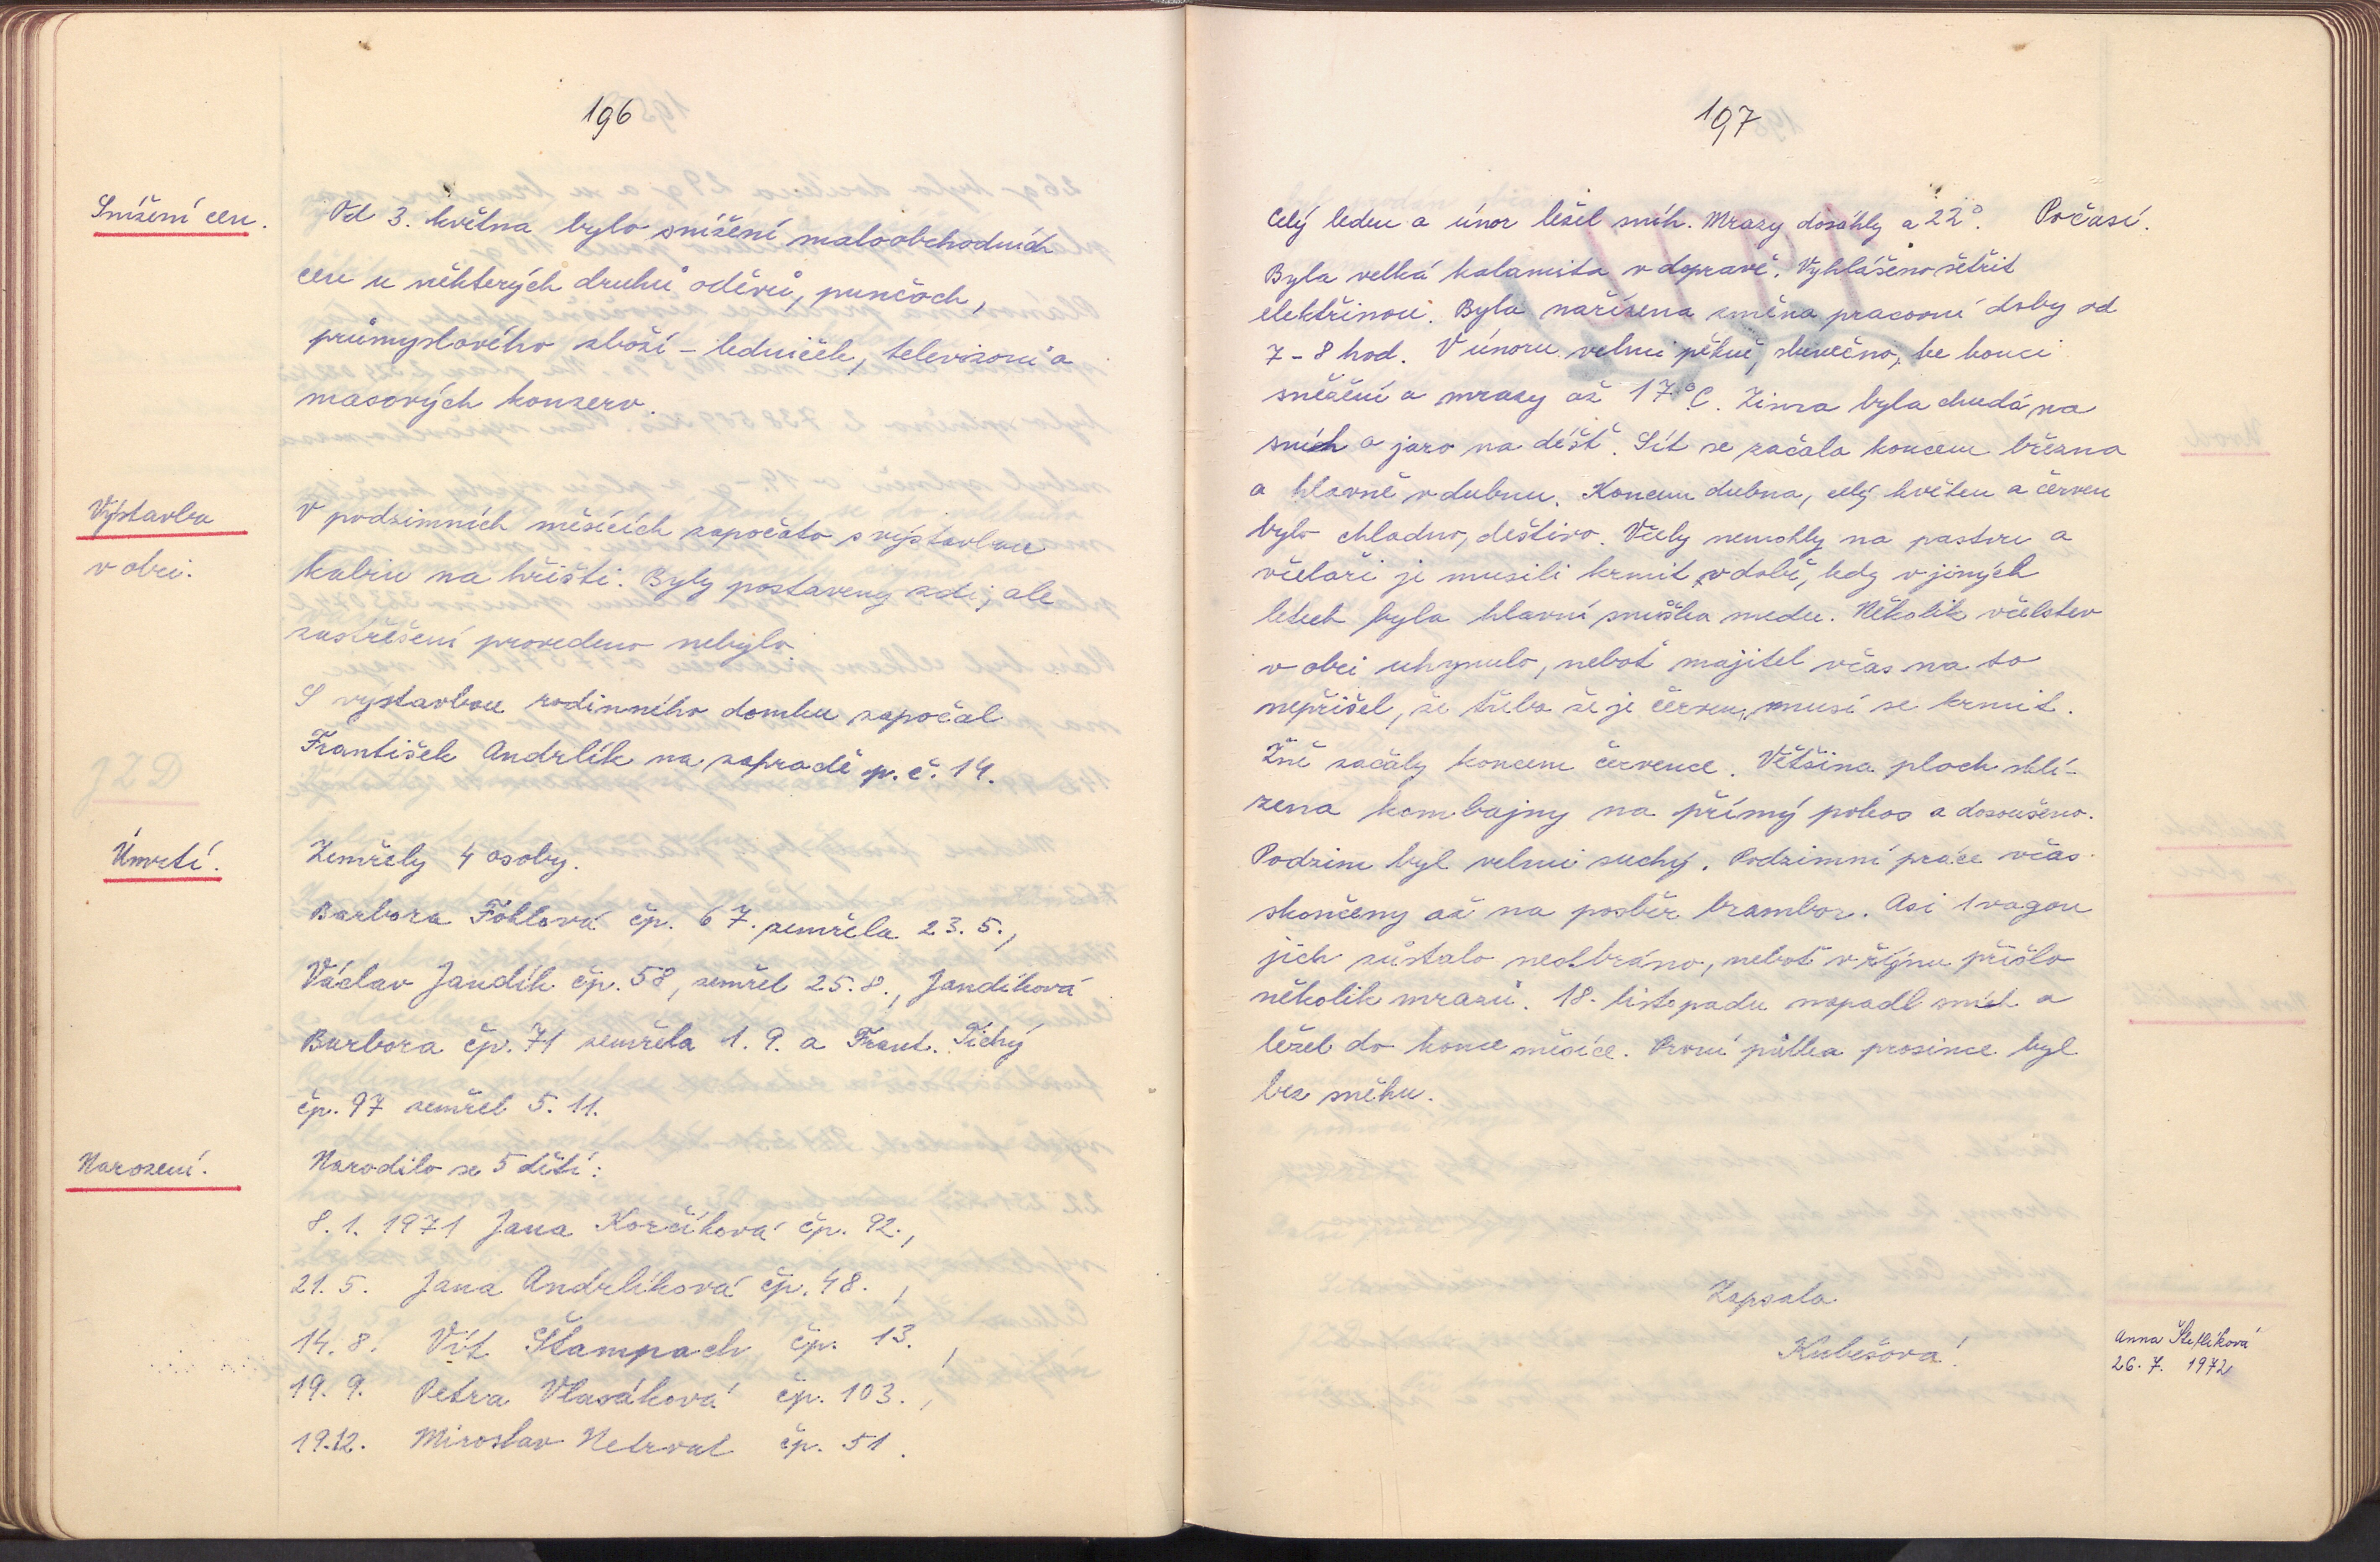 196
Snížení cen.
Od 3. května bylo snížení maloobchodních
cen u některých druhů oděvů, punčoch,
průmyslového zboží - ledniček, televizorů a
masových konzerv.
Výstavba
v obci.
V podzimních měsících započato s výstavbou
kabin na hřišti. Byly postaveny zdi, ale
zastřešení provedeno nebylo.
S výstavbou rodinného domku započal
František Andrlík na zahradě p. č. 14.
JZD
Úmrtí.
Zemřely 4 osoby.
Barbora Föhlová čp. 67. zemřela 23. 5.,
Václav Jandík čp. 58, zemřel 25. 8., Jandíková
Barbora čp. 71 zemřela 1. 9. a Frant. Tichý
čp. 97 zemřel 5. 11.
Narození.
Narodilo se 5 dětí:
8. 1. 1971 Jana Korčíková čp. 92.,
21. 5. Jana Andrlíková čp. 48.,
14. 8. Vít Štampach čp. 13.,
19. 9. Petra Vlasáková čp. 103.,
19.12. Miroslav Netrval čp. 51.
197
Počasí.
Celý leden a únor ležel sníh. Mrazy dosáhly a 22°.
Byla velká kalamita v dopravě. Vyhlášeno šetřit
elektřinou. Byla nařízena změna pracovní doby od
7 - 8 hod. V únoru velmi pěkně, slunečno, ke konci
sněžení a mrazy až 17°C. Zima byla chudá na
sníh a jaro na déšť. Sít se začalo koncem března
a hlavně v dubnu. Koncem dubna, celý květen a červen
bylo chladno, deštivo. Včely nemohly na pastvu a
včelaři je musili krmit v době, kdy v jiných
letech byla hlavní snůška medu. Několik včelstev
v obci uhynulo, neboť majitel včas na to
nepřišel, že třeba že je červen, musí se krmit.
Žně začaly koncem července. Většina ploch skli-
zena kombajny na přímý pokos a dosoušeno.
Podzim byl velmi suchý. Podzimní práce včas
skončeny až na posběr brambor. Asi 1 vagon
jich zůstalo nesebráno, neboť v říjnu přišlo
několik mrazů. 18. listopadu napadl sníh a
ležel do konce měsíce. První půlka prosince byl
bez sněhu.
Zapsala
Kubešová!
Anna
26. 7. 1972